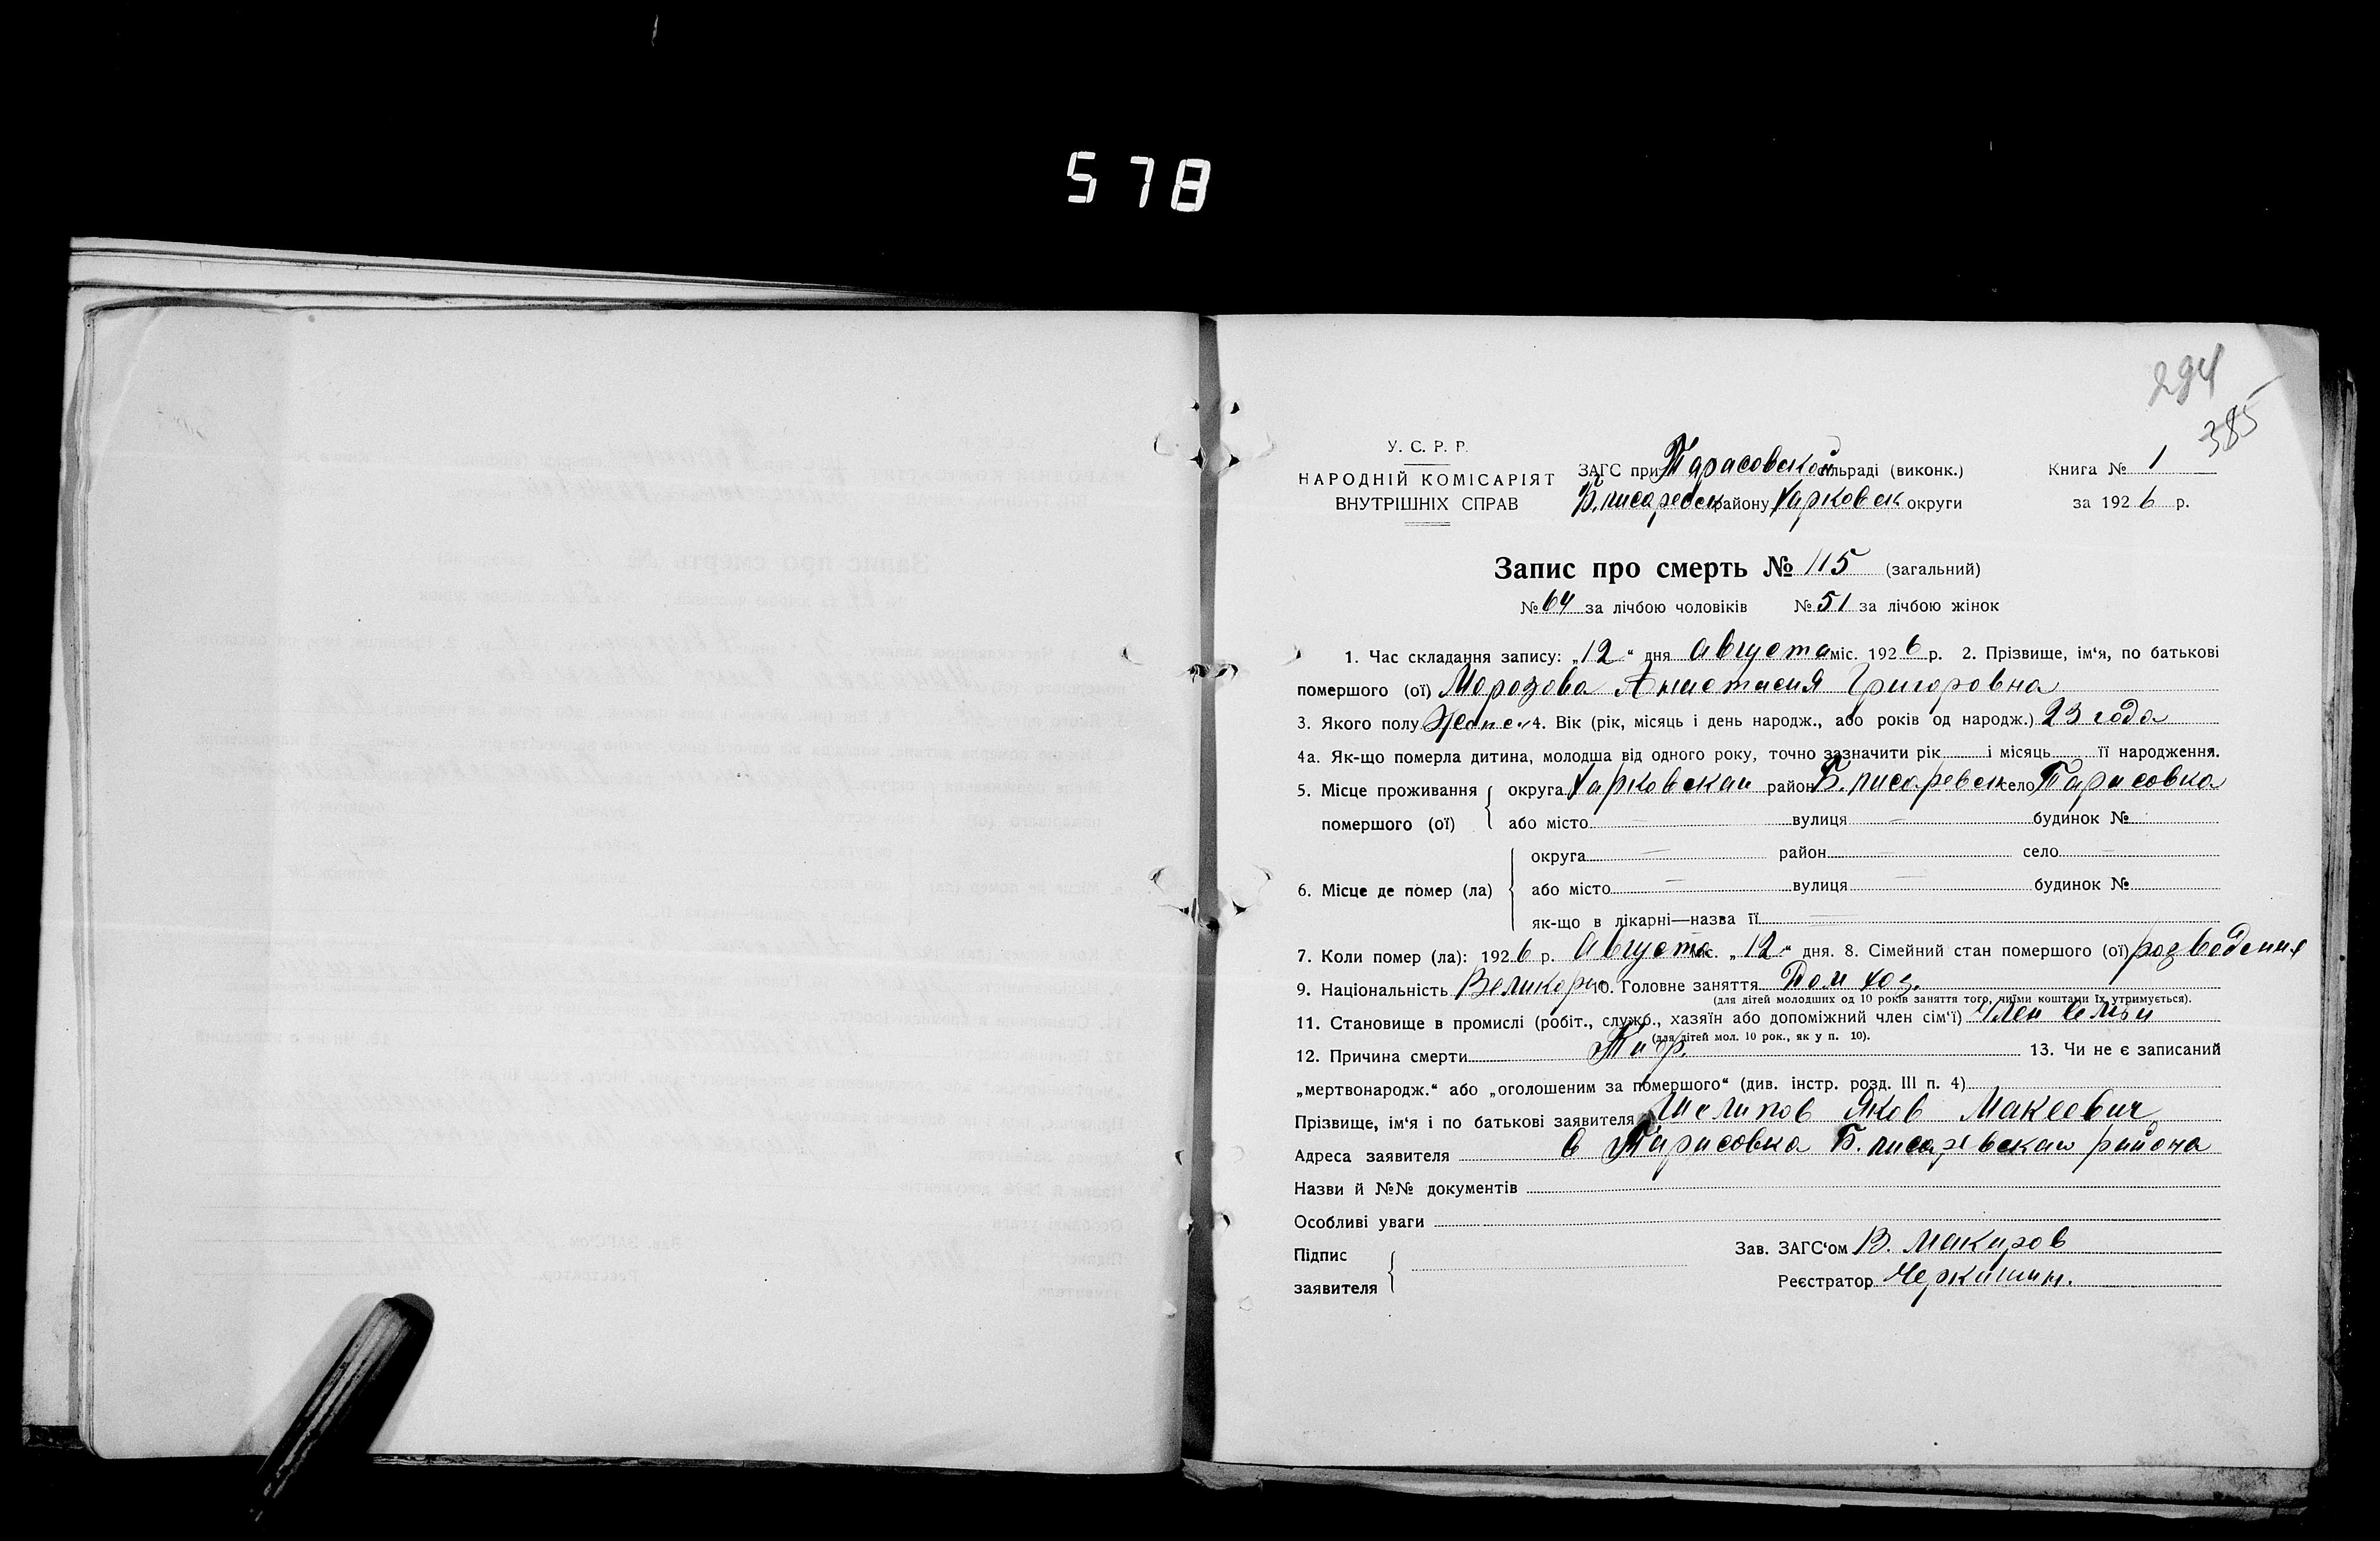 578
294
385
У. С. Р. Р.
НАРОДНІЙ КОМІСАРІЯТ
ВНУТРІШНІХ СПРАВ
ЗАГС при Тарасовской сільраді (виконк.)
Б. писаревск району Харковск округи
Книга № 1
за 1926 р.
Запис про смерть № 115 (загальний)
№ 64 за лічбою чоловіків № 51 за лічбою жінок
1. Час складання запису: „12“ дня Августа міс. 1926 р. 2. Прізвище, ім‘я, по батькові
помершого (ої) Морозова Анастасия Григоровна
3. Якого полу Женс. 4. Вік (рік, місяць і день народж., або років од народж.) 23 года
4а. Як-що померла дитина, молодша від одного року, точно зазначити рік і місяць її народження.
5. Місце проживання помершого (ої) округа Харковская район Б. писаревск село Тарасовка
або місто — вулиця — будинок №
6. Місце де помер (ла) округа — район — село —
або місто — вулиця — будинок №
як-що в лікарні—назва її —
7. Коли помер (ла): 1926 р. Августа міс. „12“ дня. 8. Сімейний стан помершого (ої) розведения
9. Національність Великорос 10. Головне заняття Дом хоз.
(для дітей молодших од 10 років заняття того, чиїми коштами їх утримується).
11. Становище в промислі (робіт., служб., хазяїн або допоміжний член сім‘ї) Член семьи
(для дітей мол. 10 рок., як у п. 10).
12. Причина смерти 13. Чи не є записаний
„мертвонародж.“ або „оголошеним за помершого“ (див. інстр. розд. III п. 4)
Прізвище, ім‘я і по батькові заявителя Яков Макеевич
Адреса заявителя С Тарасовка Б. писаревская района
Назви й №№ документів
Особливі уваги
Підпис
заявителя
Зав. ЗАГС‘ом В. Макаров
Реєстратор Черкашин.